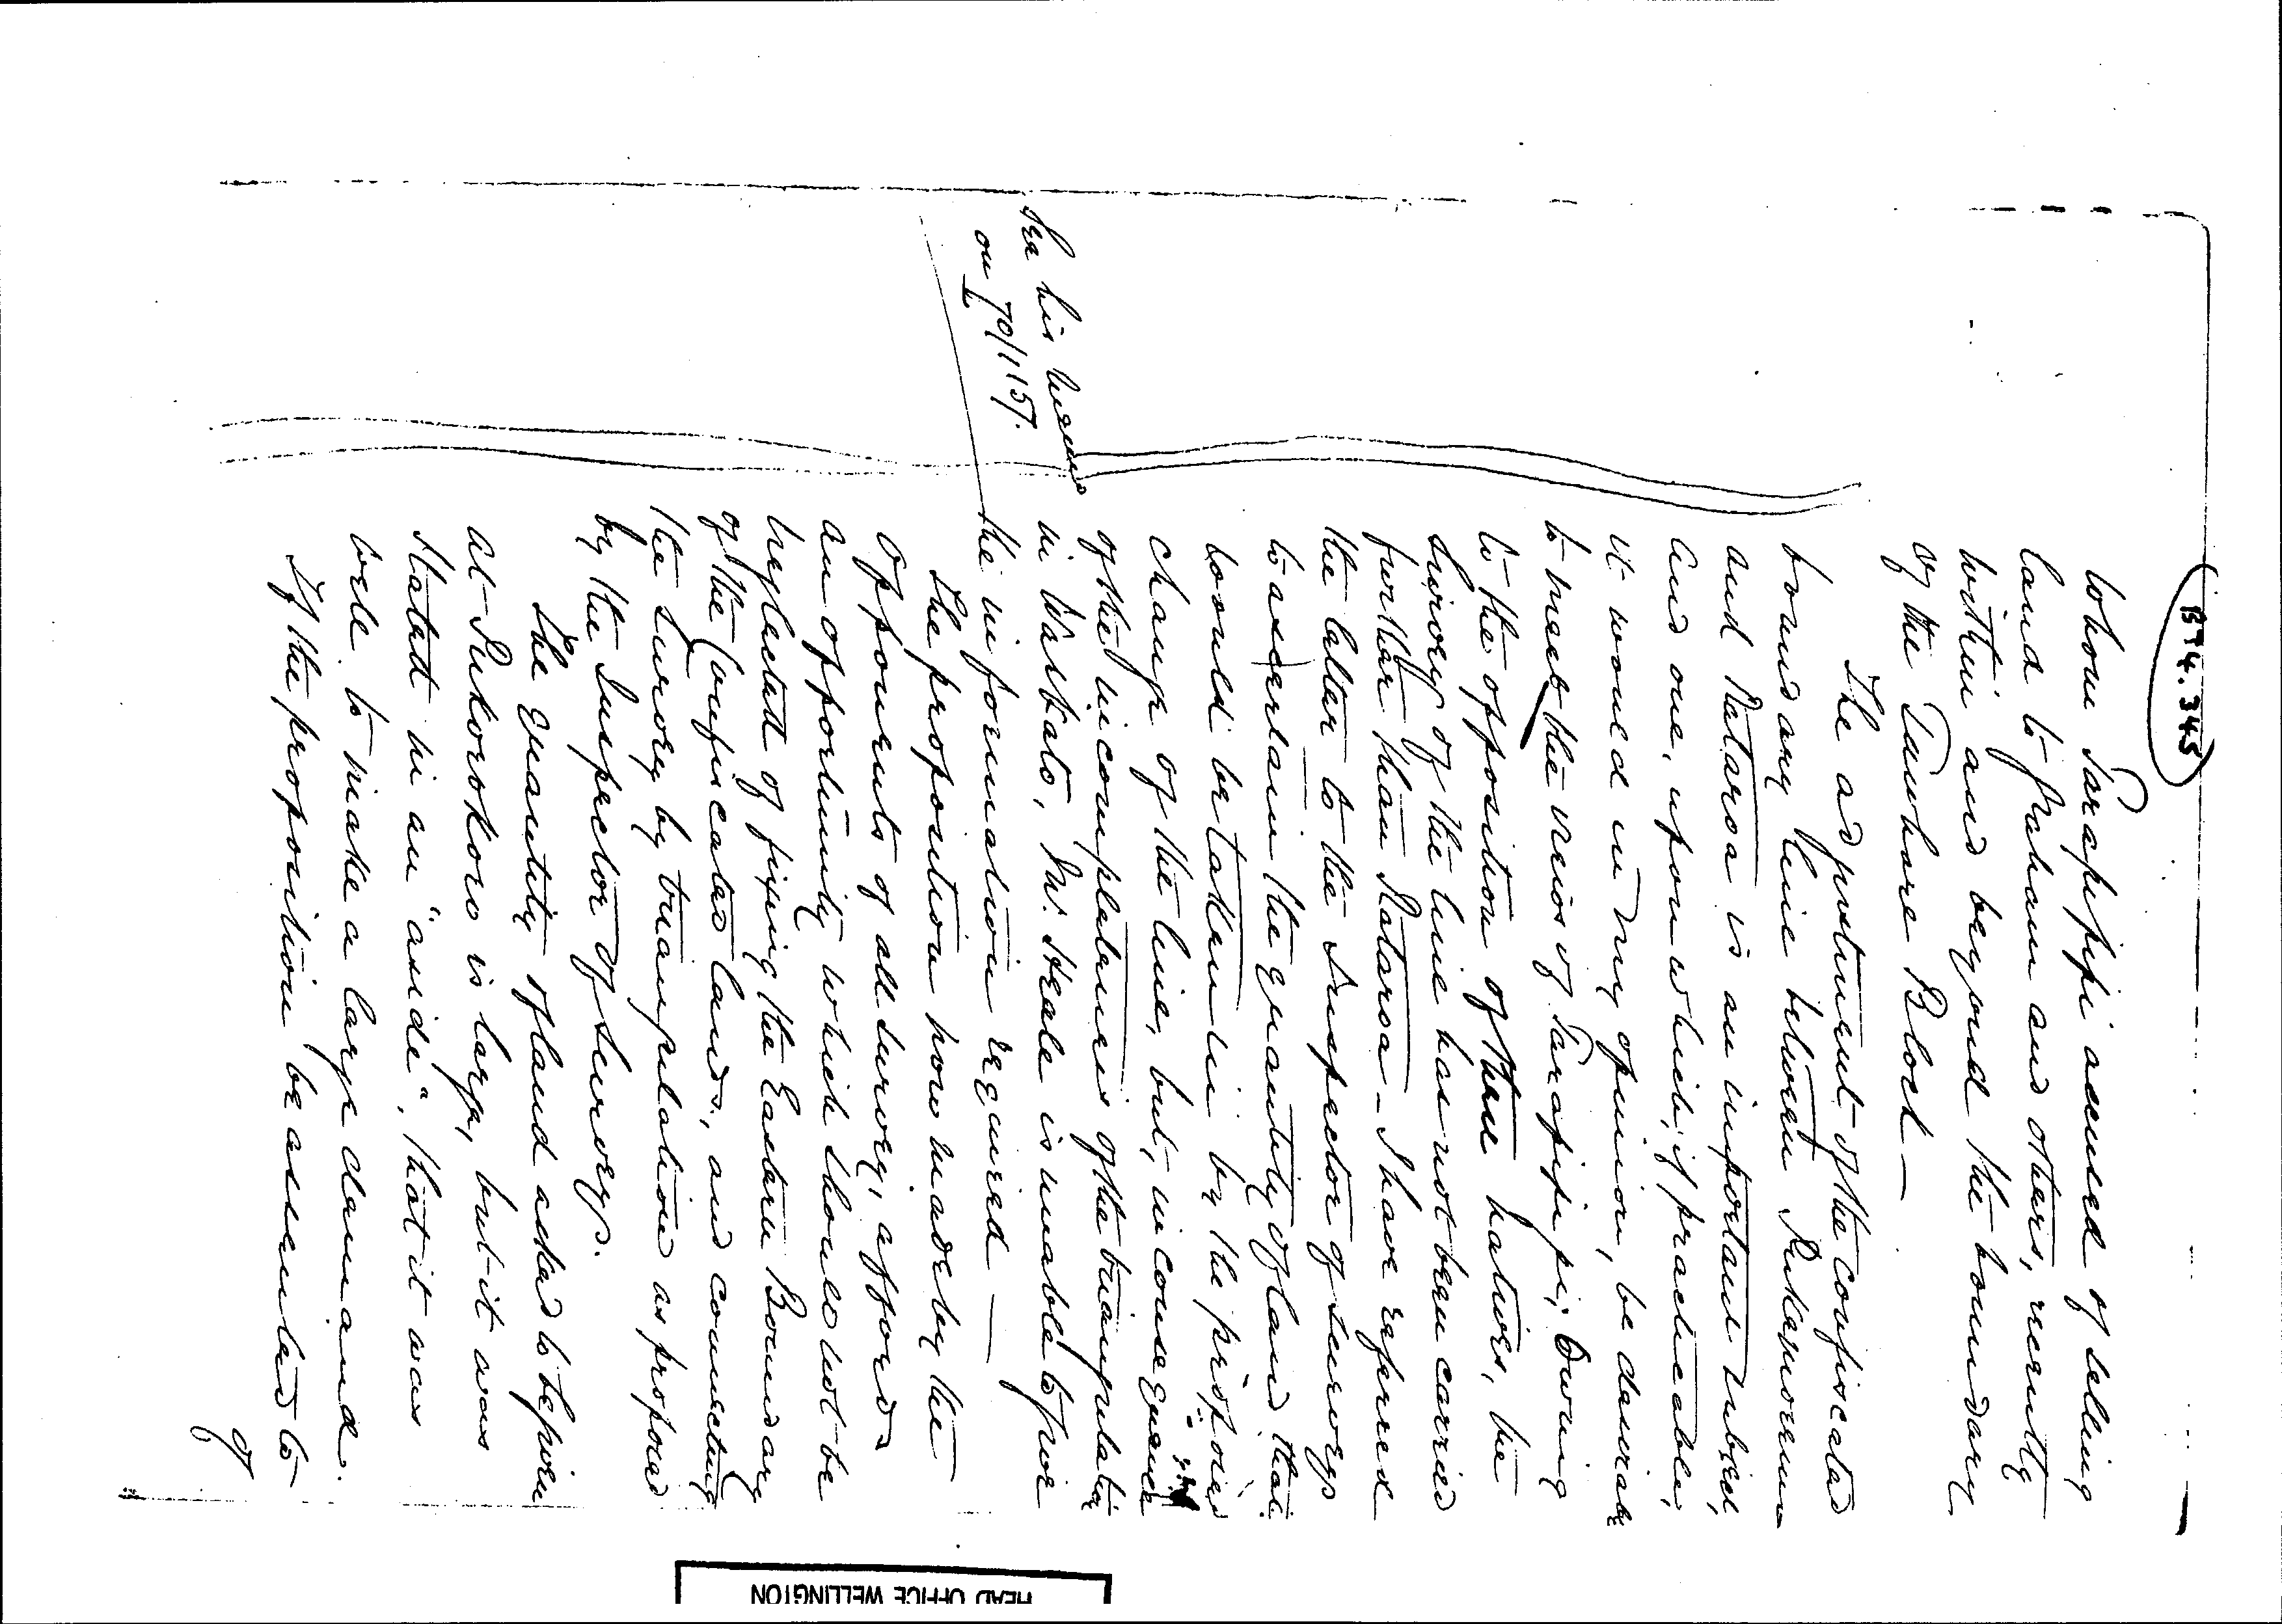 B74.345
whom Tarapipipi accused of selling
land to Graham and others, recently
within and beyond the boundary
of the Tauhare Block —
The adjustment of the confiscated
boundary line between Pukemoremore
and Mataroa is an important subject,
and one, upon which, if practicable,
it would in my opinion, be desirable
to meet the views of Tarapipipi; Owing
to the opposition of these natives, the
survey of the line has not been carried
further than Mataroa - I have referred
the latter to the Inspector of Surveys
to ascertain the quantity of land that
would be taken in by the proposed
change of the line, but, in consequence
of the incompleteness of the triangulation
in Waikato, Mr. Heale is unable to give
the information required —
See his memo
on 70/1157.
The proposition now made by the
opponents of all survey, affords
an opportunity which should not be
neglected of fixing the Eastern Boundary
of the Confiscated lands, and connecting
the survey by triangulation as proposed
by the Inspector of Surveys.
The quantity of land asked to be given
at Pukorokoro is large, but it was
stated in an "aside", that it was
well to make a large demand.
If the proposition be assented to
of
HEAD OFFICE WELLINGTON